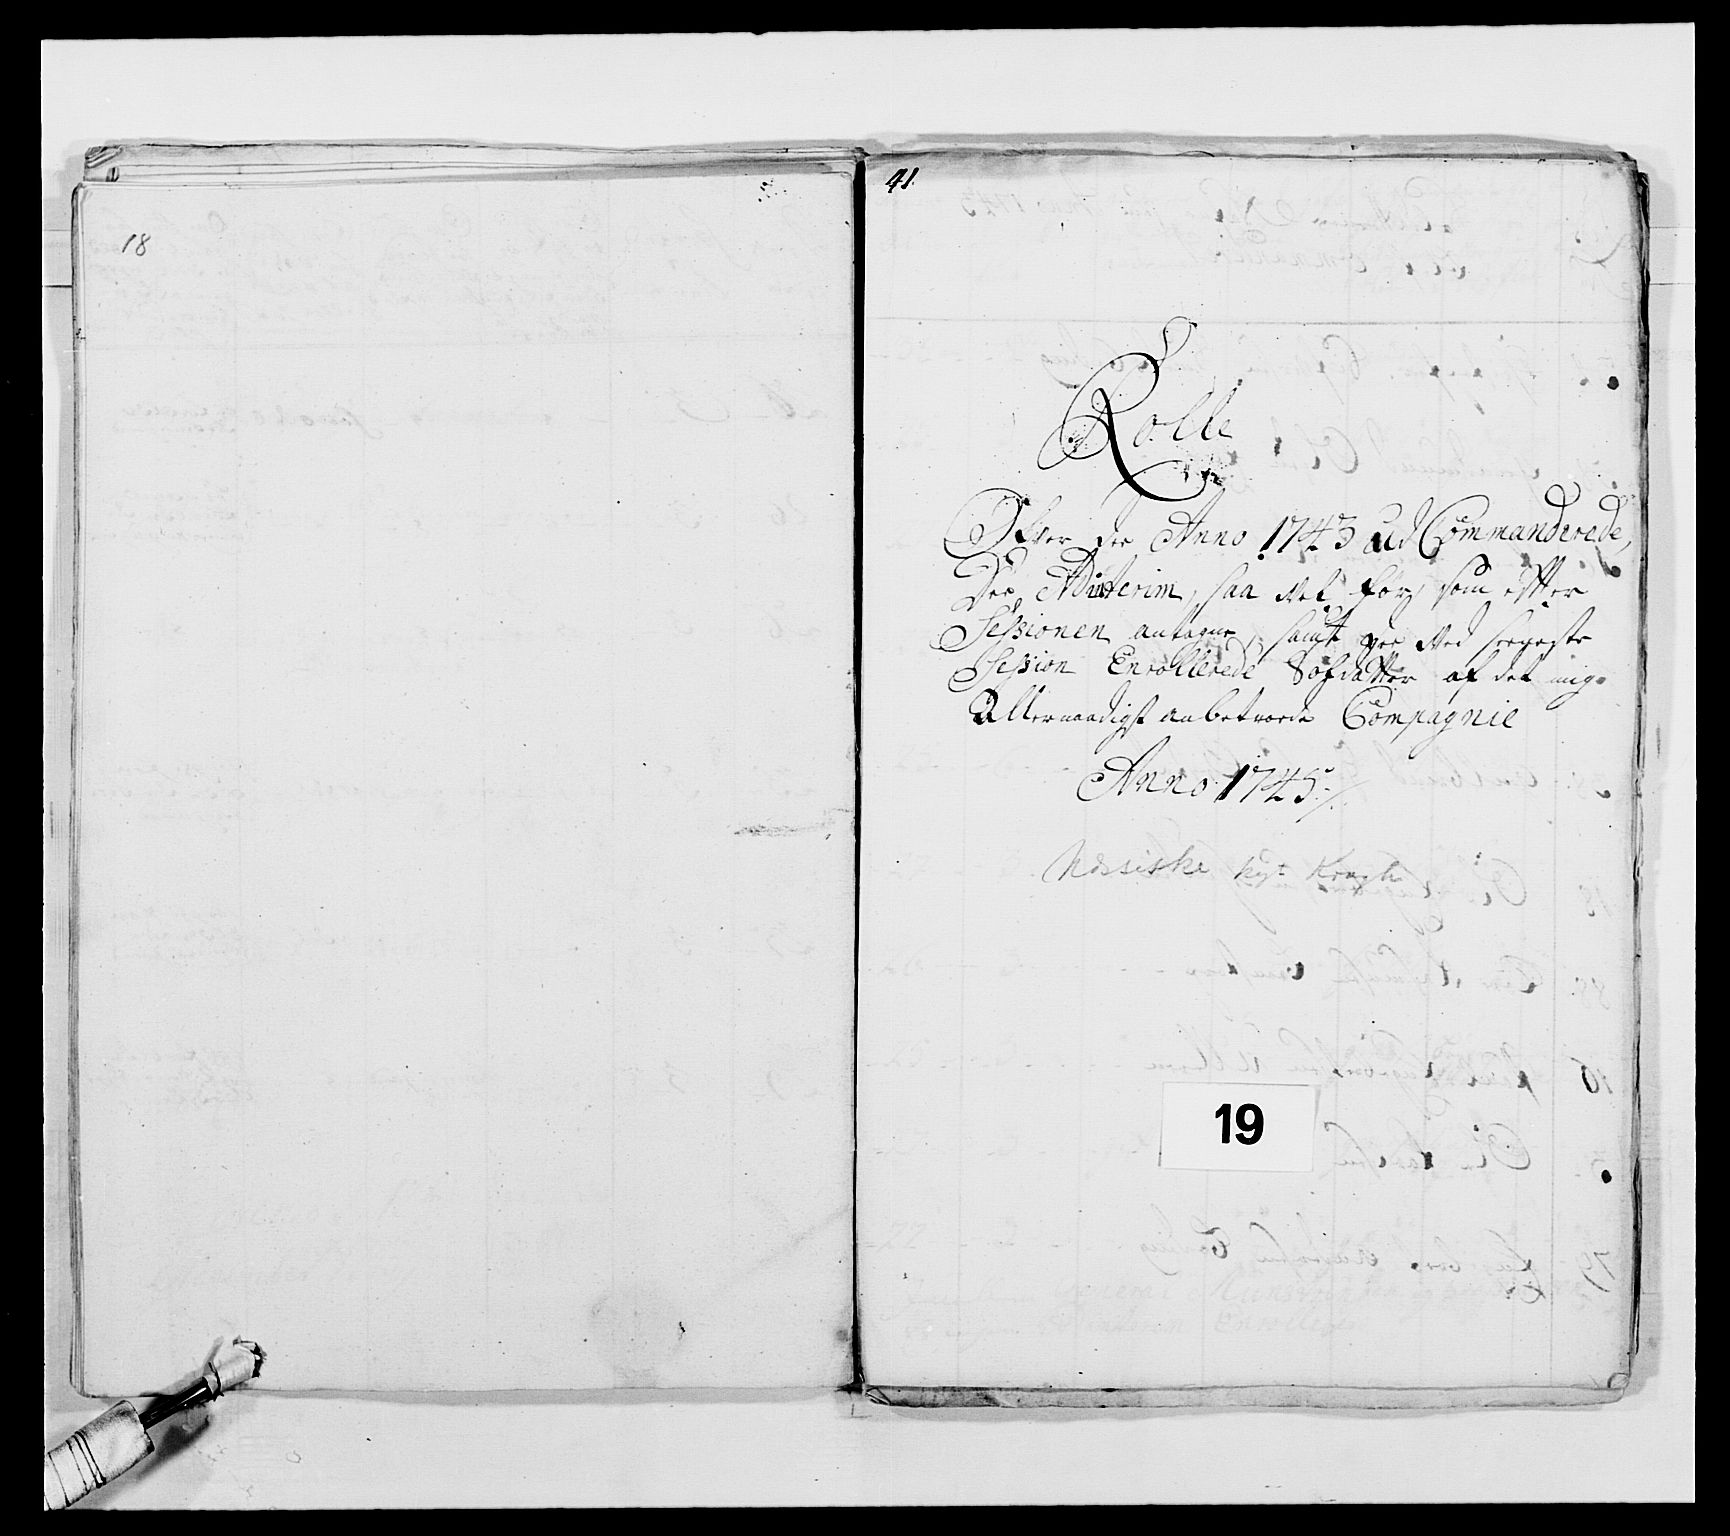 18
41.
Rolle
Ofver de Anno 1743 ud Commanderede,
De Adinterim, saa vel før, som effter
Sessionen antagne, samt de ved seeneste
Session Enrollerede Soldatter af det mig
Allernaadigst anbetroede Compagnie
Anno 1745
Nessiske kpt Kragh
19